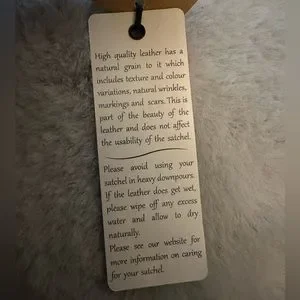 High quality leather has a
natural grain to it which
includes texture and colour
variations, natural wrinkles,
markings and scars. This is
part of the beauty of the
leather and does not affect
the usability of the satchel.
Please avoid using your
satchel in heavy downpours.
If the leather does get wet,
please wipe off any excess
water and allow to dry
naturally.
Please see our website for
more information on caring
for your satchel.